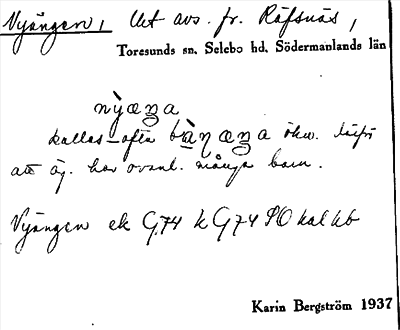 Nyängen, Ut avs. fr. Räfsnäs,
Toresunds sn. Selebo hd. Södermanlands län
nỳæŋa
kallas ofta bàṇæŋa ökn. därför
att äg. har ovanl. många barn.
Nyängen ek G74 k G74 SO kal kb
Karin Bergström 1937